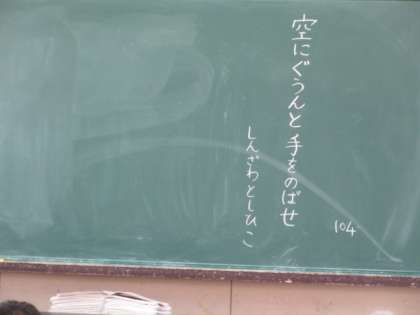 空にぐうんと手をのばせ
しんざわとしひこ
104